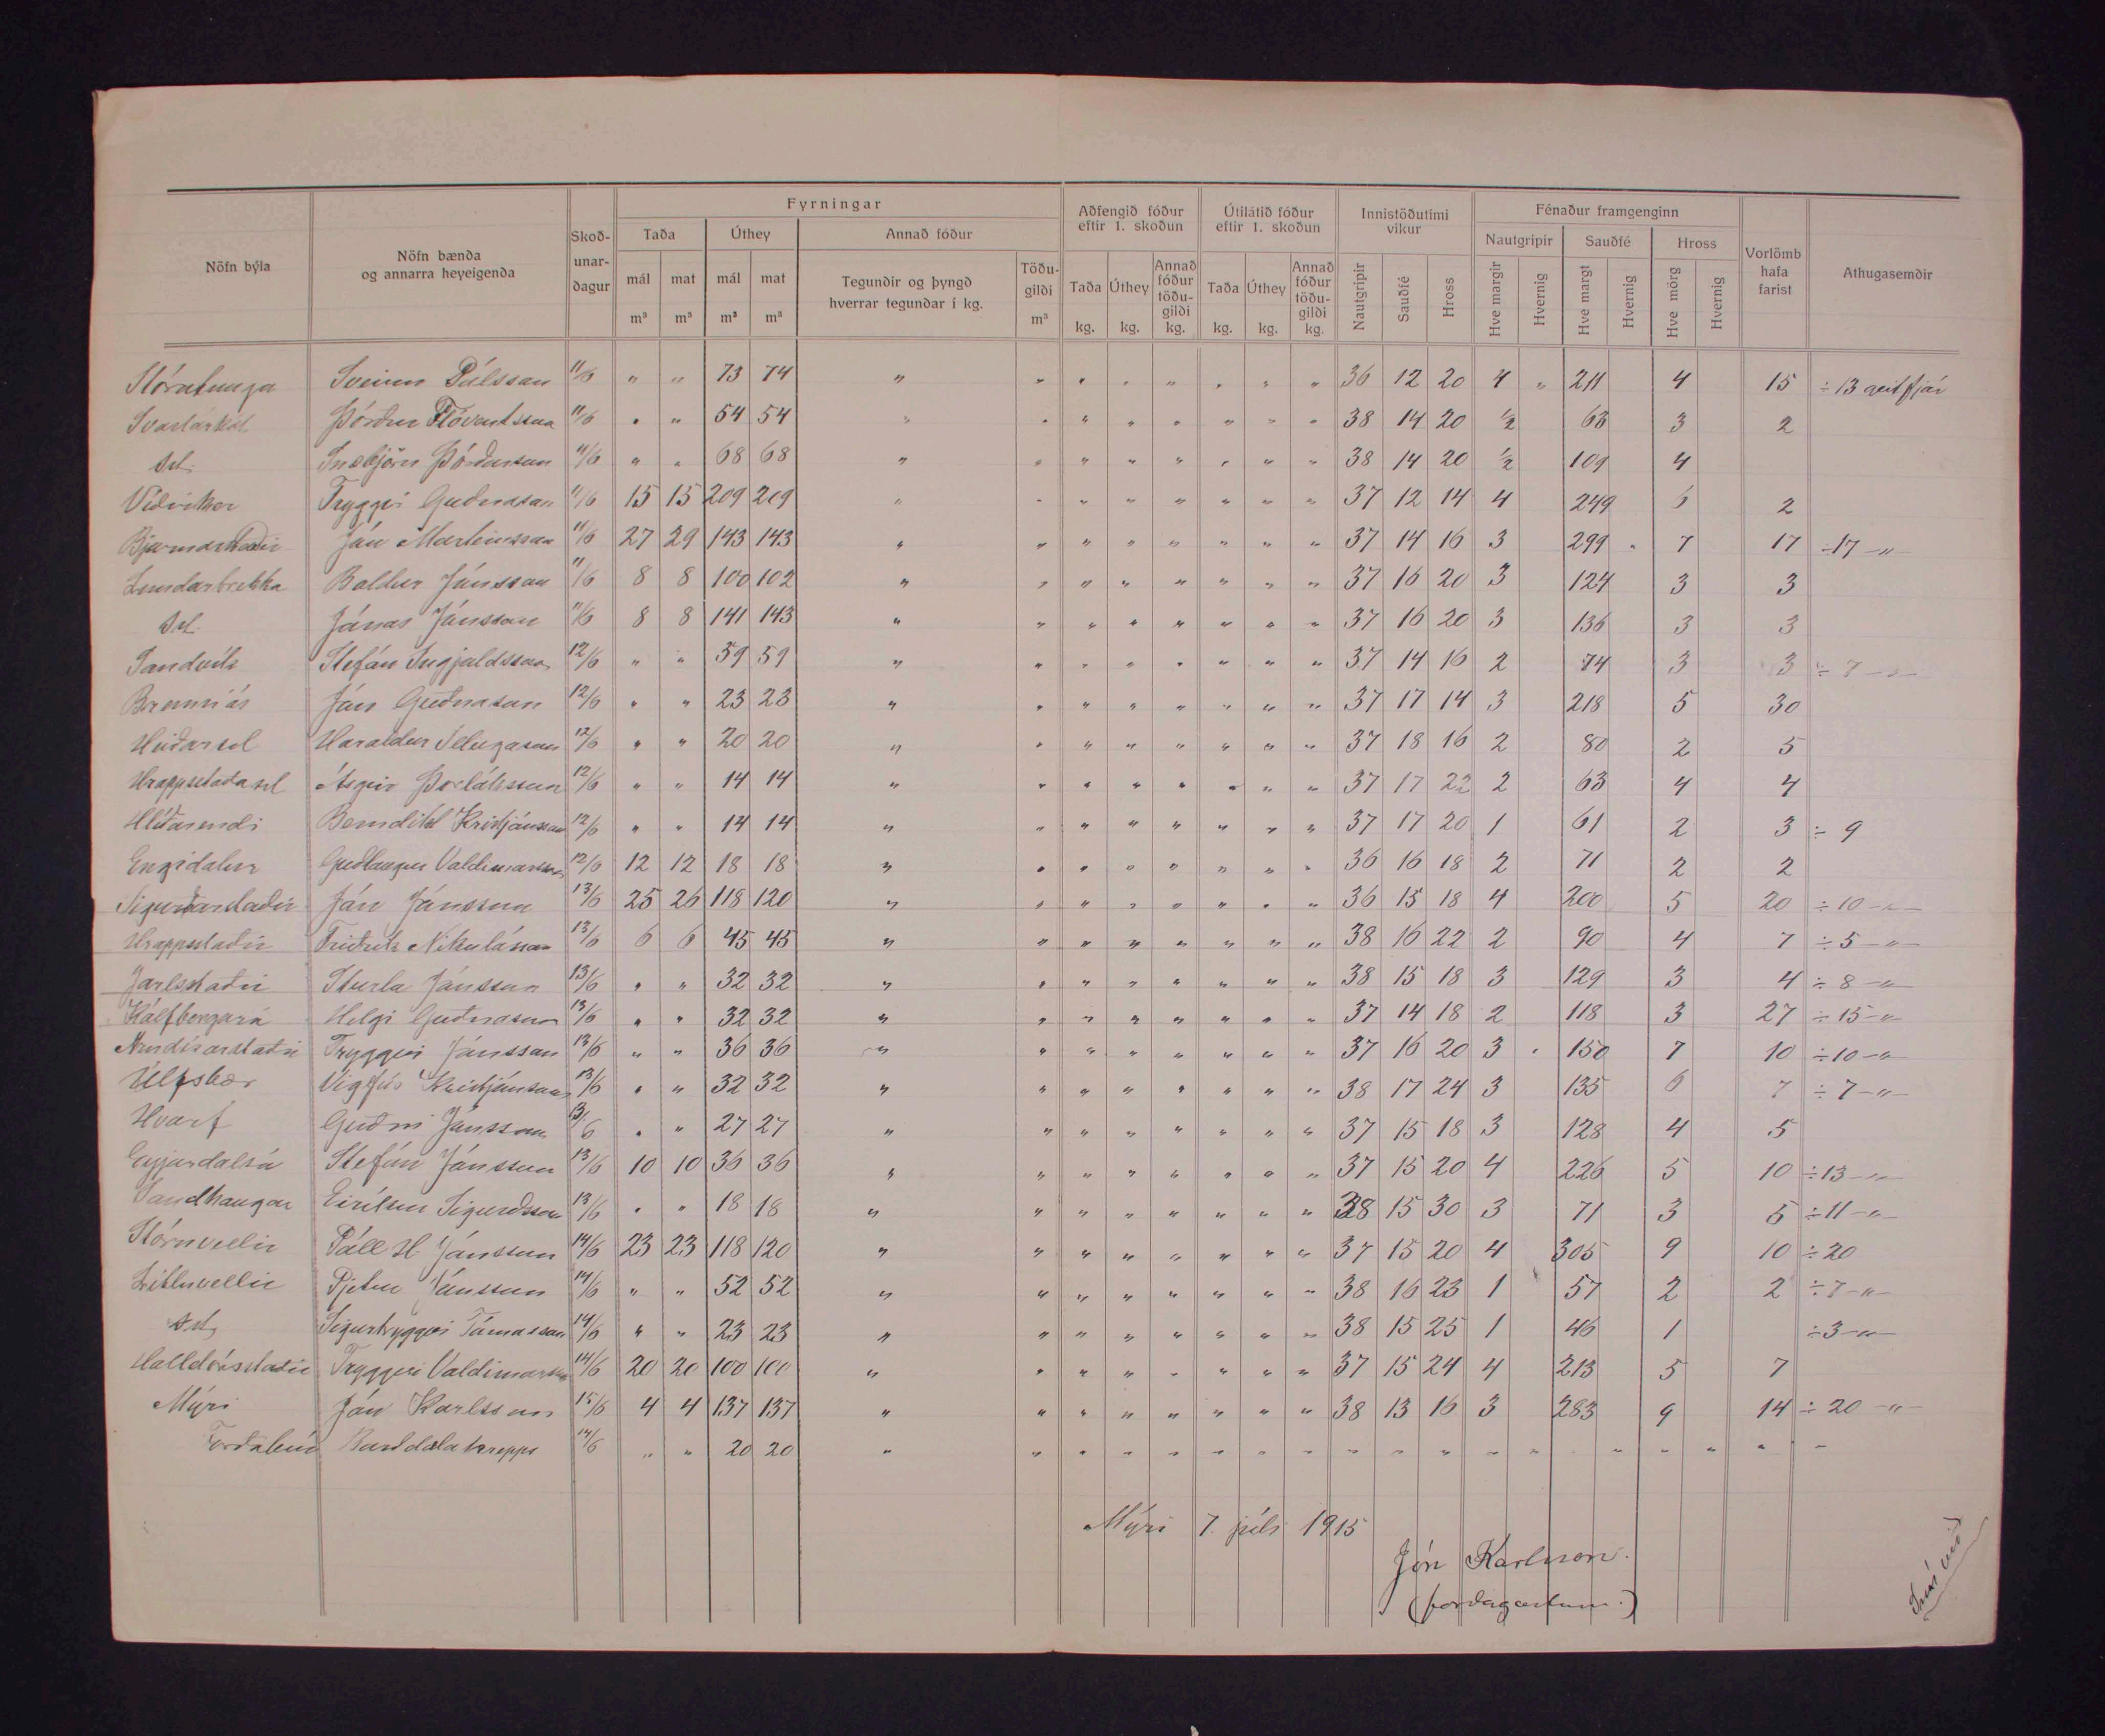 Fyrningar
Aðfengið fóður eftir 1. skoðun
Útilátið fóður eftir 1. skoðun
Innistöðutími vikur
Fénaður framgenginn
Nöfn býla
Nöfn bænda og annarra heyeigenda
Skoð-unar-dagur
Taða
Úthey
Annað fóður
Nautgripir
Sauðfé
Hross
Vorlömb hafa farist
Athugasemdir
mál m³ mat m³ mál m³ mat m³
Tegundir og þyngd hverrar tegundar í kg.
Töðu-gildi m³
Taða kg. Úthey kg. Annað fóður töðu-gildi kg.
Taða kg. Úthey kg. Annað fóður töðu-gildi kg.
Nautgripir Sauðfé Hross
Hve margir Hvernig Hve margt Hvernig Hve mörg Hvernig
Stórutunga Sveinn Pálsson 11/6 " " 73 74 " " " " " " " " 36 12 20 4 " 211 4 15 ÷ 13 geitfjár
Svartárkot Þórður Flóventsson 11/6 " " 54 54 " " " " " " " " 38 14 20 1/2 63 3 2
Sst. Snæbjörn Þórðarson 11/6 " " 68 68 " " " " " " " " 38 14 20 1/2 109 4
Víðiker Tryggvi Guðnason 11/6 15 15 209 209 " " " " " " " " 37 12 14 4 249 6 2
Bjarnarstaðir Jón Marteinsson 11/6 27 29 143 143 " " " " " " " " 37 14 16 3 299 " 7 17 ÷17 -"-
Lundarbrekka Baldur Jónsson 11/6 8 8 100 102 " " " " " " " " 37 16 20 3 124 3 3
Sst. Jónas Jónsson 11/6 8 8 141 143 " " " " " " " " 37 16 20 3 136 3 3
Sandvík Stefán Ingjaldsson 12/6 " " 59 59 " " " " " " " " 37 14 16 2 74 3 3 ÷ 7 -"-
Brenniás Jón Guðnason 12/6 " " 23 23 " " " " " " " " 37 17 14 3 218 5 30
Heiðarsel Haraldur Illugason 12/6 " " 20 20 " " " " " " " " 37 18 16 2 80 2 5
Hrappstaðasel Ásgeir Þorláksson 12/6 " " 14 14 " " " " " " " " 37 17 22 2 63 4 4
Hlíðarendi Benedikt Kristjánsson 12/6 " " 14 14 " " " " " " " " 37 17 20 1 61 2 3 ÷ 9
Engidalur Guðlaugur Valdimarsson 12/6 12 12 18 18 " " " " " " " " 36 16 18 2 71 2 2
Sigurðarstaðir Jón Jónsson 13/6 25 26 118 120 " " " " " " " " 36 15 18 4 200 5 20 ÷10 -"-
Hrappsstaðir Friðrik Nikulásson 13/6 6 6 45 45 " " " " " " " " 38 16 22 2 90 4 7 ÷5 -"-
Jarlsstaðir Sturla Jónsson 13/6 " " 32 32 " " " " " " " " 38 15 18 3 129 3 4 ÷ 8 -"-
Kálfborgará Helgi Guðnason 13/6 " " 32 32 " " " " " " " " 37 14 18 2 118 3 27 ÷15 -"-
Arndísarstaðir Tryggvi Jónsson 13/6 " " 36 36 " " " " " " " " 37 16 20 3 " 150 7 10 ÷10 -"-
Úlfsbær Vigfús Kristjánsson 13/6 " " 32 32 " " " " " " " " 38 17 24 3 135 6 7 ÷ 7 -"-
Hvarf Guðni Jónsson 13/6 " " 27 27 " " " " " " " " 37 15 18 3 128 4 5
Eyjardalsá Stefán Jónsson 13/6 10 10 36 36 " " " " " " " " 37 15 20 4 226 5 10 ÷13 -"-
Sandhaugar Eiríkur Sigurðsson 13/6 " " 18 18 " " " " " " " " 38 15 30 3 71 3 5 ÷11 -"-
Stóruvellir Páll H Jónsson 14/6 23 23 118 120 " " " " " " " " 37 15 20 4 305 9 10 ÷20
Litluvellir Pjetur Jónsson 14/6 " " 52 52 " " " " " " " " 38 16 23 1 57 2 2 ÷7 -"-
Sst. Sigurtryggvi Tómasson 14/6 " " 23 23 " " " " " " " " 38 15 25 1 46 1 ÷3 -"-
Halldórsstaðir Tryggvi Valdimarsson 14/6 20 20 100 100 " " " " " " " " 37 15 24 4 213 5 7
Mýri Jón Karlsson 15/6 4 4 137 137 " " " " " " " " 38 13 16 3 283 9 14 ÷ 20 -"-
Forðabúr Bárðdælahrepps 14/6 " " 20 20 " " " " " " " " " " " " " " " " " " "
Mýri 7. júli 1915
Jón Karlsson.
(forðagæslum.)